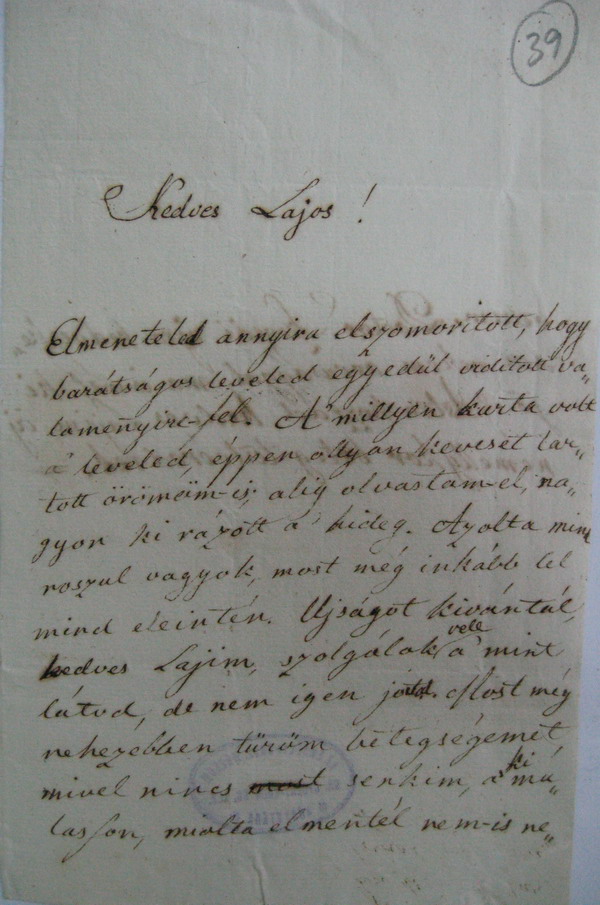 39
Kedves Lajos!
Elmeneteled annyira elszomorított, hogy
barátságos leveled egyedűl vidított va„
lamenyire-fel. A' millyen kurta volt
a' leveled, éppen ollyan keveset tar„
tott örömöm-is; alig olvastam-el, na„
gyon ki rázott a' hideg. Azolta mind
roszul vagyok, most még inkább lel
mind eleintén. Ujságot kivántál,
kedves Lajim, szolgálok vele a' mint
látod, de nem igen jóval. Most még
nehezebben tűröm betegségemet,
mivel nincs senkim, a' ki mú„
lasson, miolta elmentél nem-is ne„